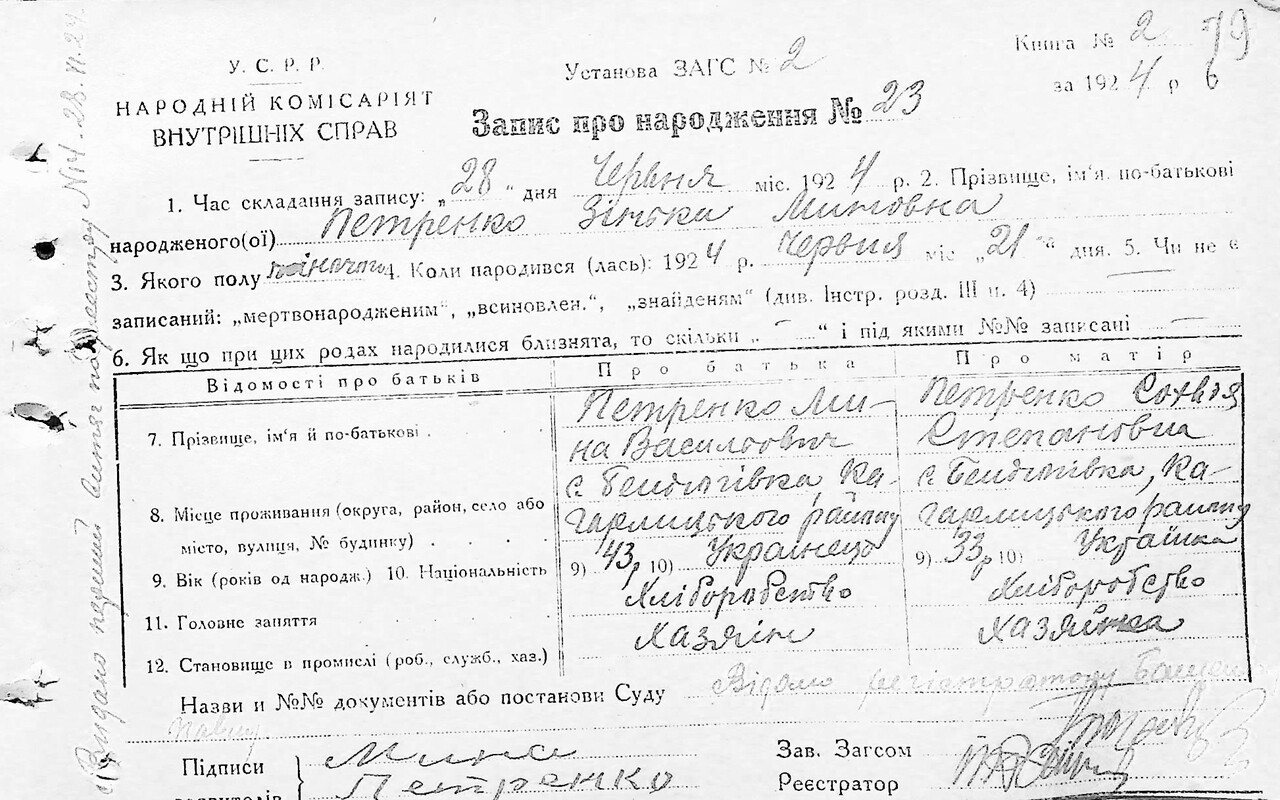 У. С. Р. Р.
НАРОДНІЙ КОМІСАРІЯТ
ВНУТРІШНІХ СПРАВ
Установа ЗАГС № 2
Книга № 2 79
за 1924 р 6
Запис про народження № 23
1. Час складання запису: „28" дня Червня міс. 1924 р. 2. Прізвище, ім'я, по-батькові
народженого(ої) Петренко Зінька Миновна
3. Якого полу жіночого 4. Коли народився (лась): 1924 р. Червня міс „21" дня. 5. Чи не є
записаний: „мертвонародженим", „всиновлен.", „знайденям" (див. Інстр. розд. III п. 4)
6. Як що при цих родах народилися близнята, то скільки „ — " і під якими №№ записані —
Відомості про батьків Про батька Про матір
7. Прізвище, ім'я й по-батькові Петренко Ми- Петренко Софія
на Васильович Степановна
8. Місце проживання (округа, район, село або с. Бендюгівка Ка- с. Бендюгівка, Ка-
місто, вулиця, № будинку) гарлицького району гарлицького району
9. Вік (років од народж.) 10. Національність 9) 43р 10) Українець 9) 33р 10) Українка
11. Головне заняття Хліборобство Хліборобство
12. Становище в промислі (роб., служб., хаз.) Хазяїн Хазяйка
Назви и №№ документів або постанови Суду Відомо регістратору
Підписи Мина
Петренко
Зав. Загсом
Реєстратор
Видано перший витяг по реєстру №14. 28.VI.24